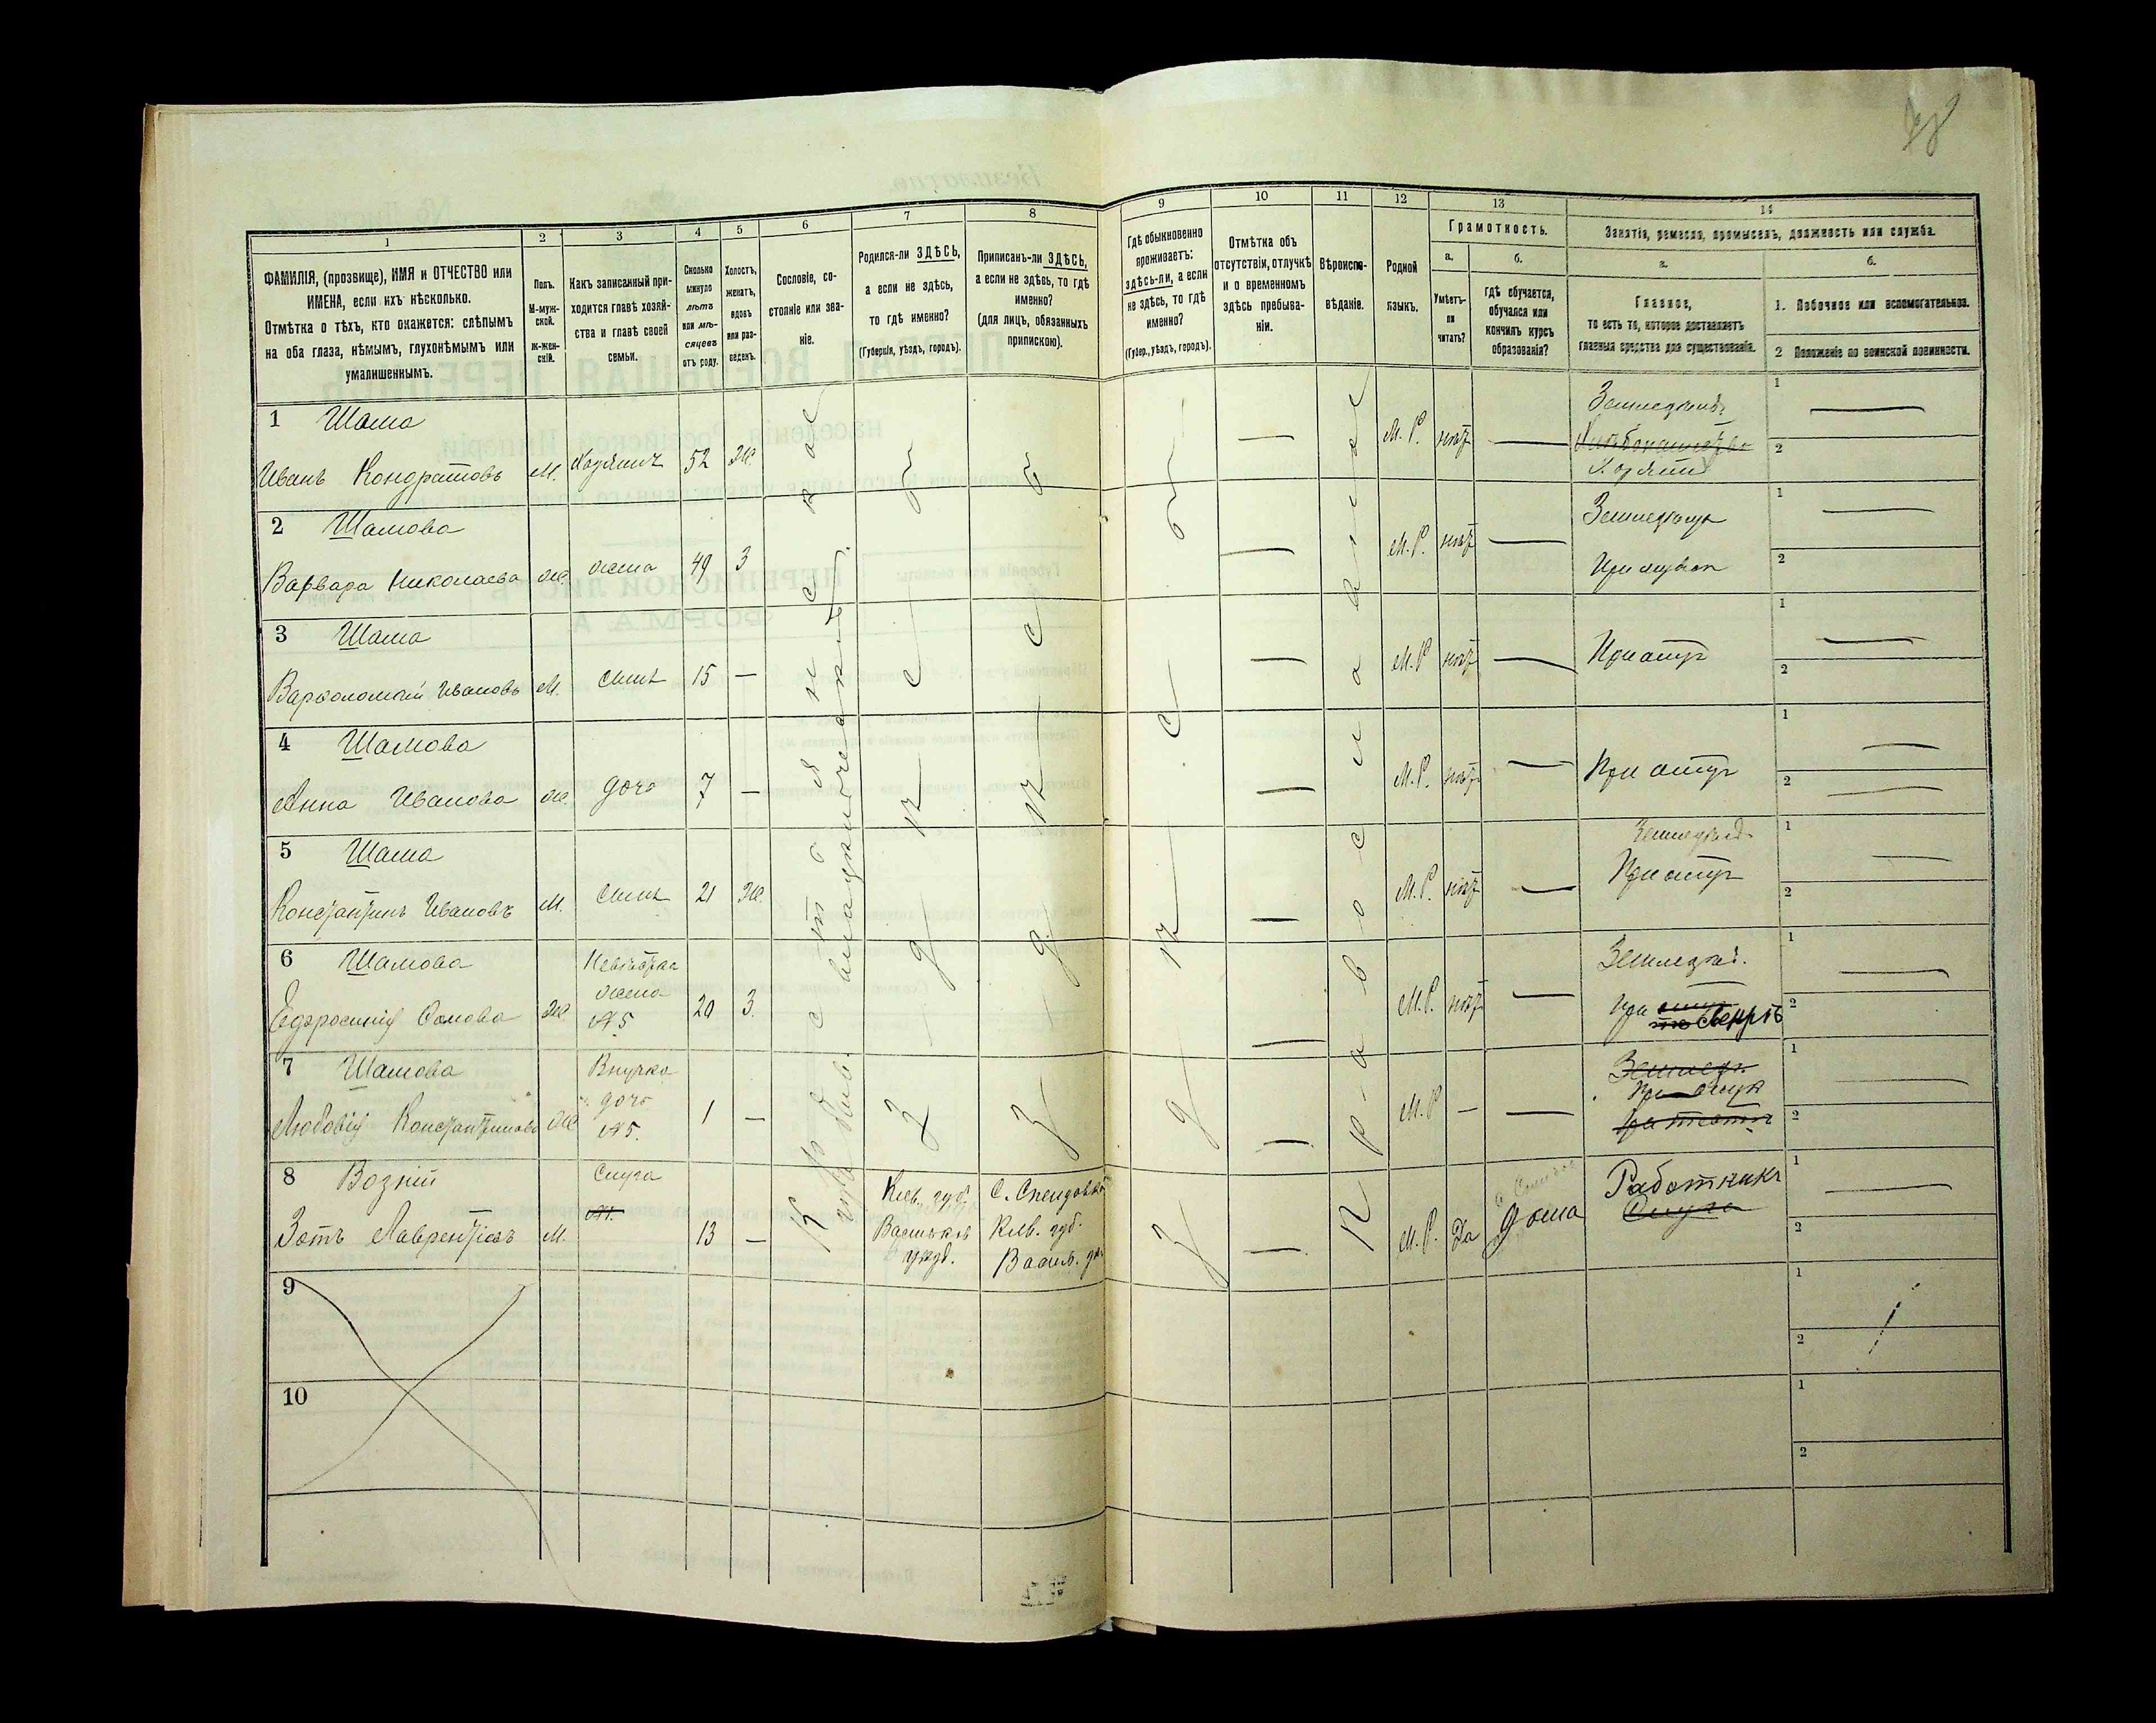 1
2
3
4
5
6
7
8
9
10
11
12
13
14
ФАМИЛІЯ, (прозвище), ИМЯ и ОТЧЕСТВО или
ИМЕНА, если ихъ нѣсколько.
Отмѣтка о тѣхъ, кто окажется: слѣпымъ
на оба глаза, нѣмымъ, глухонѣмымъ или
умалишеннымъ.
Полъ.
М-муж-
ской.
Ж-жен-
скій.
Какъ записанный при-
ходится главѣ хозяй-
ства и главѣ своей
семьи.
Сколько
минуло
лѣтъ
или мѣ-
сяцевъ
отъ роду.
Холостъ,
женатъ,
вдовъ
или раз-
веденъ.
Сословіе, со-
стояніе или зва-
ніе.
Родился-ли ЗДѢСЬ,
а если не здѣсь,
то гдѣ именно?
(Губернія, уѣздъ, городъ).
Приписанъ-ли ЗДѢСЬ,
а если не здѣсь, то гдѣ
именно?
(для лицъ, обязанныхъ
припискою).
Гдѣ обыкновенно
проживаетъ:
здѣсь-ли, а если
не здѣсь, то гдѣ
именно?
(Губер., уѣздъ, городъ).
Отмѣтка объ
отсутствіи, отлучкѣ
и о временномъ
здѣсь пребыва-
ніи.
Вѣроиспо-
вѣданіе.
Родной
языкъ.
Грамотность.
а.
Умѣетъ-
ли
читать?
б.
гдѣ обучается,
обучался или
кончилъ курсъ
образованія?
Занятіе, ремесло, промыселъ, должность или служба.
а.
Главное,
то есть то, которое доставляетъ
главныя средства для существованія.
б.
1. Побочное или вспомогательное.
2 Положеніе по воинской повинности.
1 Шама
Иванъ Кондратовъ М. Хозяинъ 52 Ж. М. Р. нѣтъ
Земледѣліе
Хозяинъ
1
2
2 Шамова
Варвара Николаева Ж. жена 49 З М. Р. нѣтъ
Земледѣліе
При мужѣ
1
2
3 Шама
Варфоломей Ивановъ М. сынъ 15 — М. Р нѣтъ — При отцѣ
1
2
4 Шамова
Анна Иванова Ж. дочь 7 — М. Р. нѣтъ — При отцѣ
1
2
5 Шама
Константинъ Ивановъ М. Сынъ 21 Ж. М. Р. нѣтъ —
Земледѣл.
При отцѣ
1
2
6 Шамова
Невѣстка
жена
№ 5
Ж. 20 З. М. Р. нѣтъ —
Земледѣл.
при
1
2
7 Шамова
Внучка
дочь
№ 5.
Константинова Ж 1 — М. Р — —
Земледѣ.
При отцѣ
1
2
8 Возній
Слуга
Зотъ Лаврентіевъ М. 13 —
Кіев. губ.
Васильков
уѣзд.
Кіев. губ.
Васил. у.
М. Р. Да Дома
Работникъ
Слуга
1
2
Крестьянинъ
Православная
здѣсь
здѣсь
здѣсь
9
1
2
10
1
2